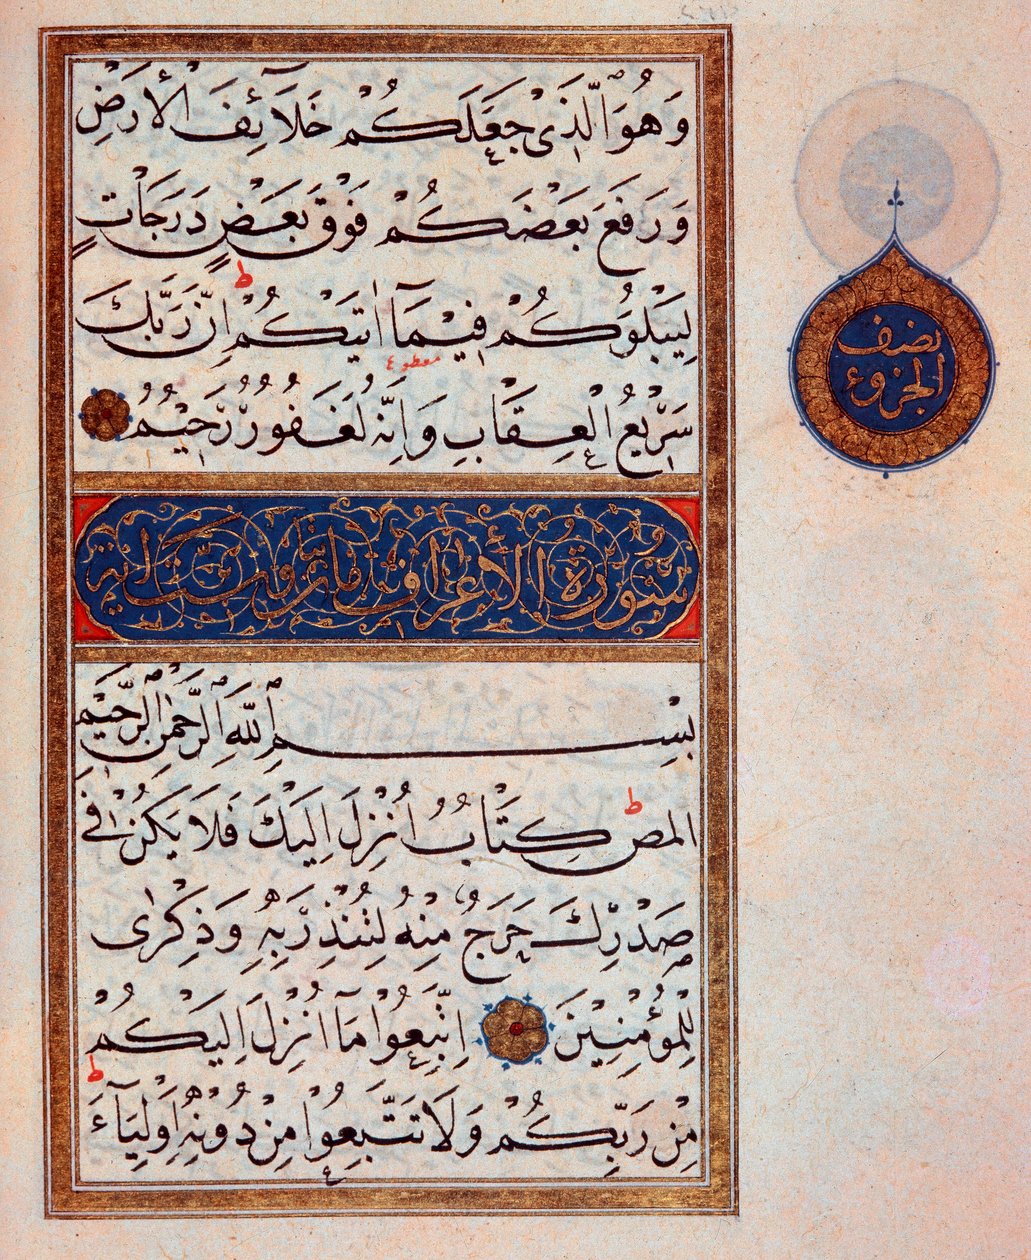 وَهُوَ الَّذِى جَعَلَكُمْ خَلَآئِفَ الْأَرْضِ
وَرَفَعَ بَعْضَكُمْ فَوْقَ بَعْضٍ دَرَجَاتٍ
ط
لِيَبْلُوَكُمْ فِيمَآ اٰتٰيكُمْ اِنَّ رَبَّكَ
سَرِيْعُ الْعِقَابِ وَاِنَّهُ لَغَفُورٌ رَّحِيْمٌ
نصف
الجزوء
سُوْرَةُ الْأَعْرَافِ مائتان وست اية
بِسْمِ اللَّهِ الرَّحْمٰنِ الرَّحِيْمِ
ط
المص كِتَابٌ اُنْزِلَ اِلَيْكَ فَلَا يَكُنْ فِى
صَدْرِكَ حَرَجٌ مِنْهُ لِتُنْذِرَ بِهِ وَذِكْرٰى
لِلْمُؤْمِنِيْنَ اِتَّبِعُوا مَآ اُنْزِلَ اِلَيْكُمْ
ط
مِنْ رَبِّكُمْ وَلَا تَتَّبِعُوْا مِنْ دُوْنِهِ اَوْلِيَآءَ